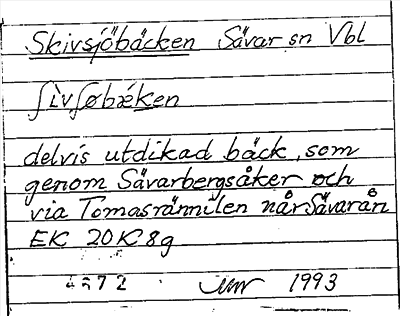 Skivsjöbäcken Sävar sn Vbl
ʃìvʃøbǽken
delvis utdikad bäck, som
genom Sävarbergsåker och
via Tomasrännilen når Sävarån
EK 20K8g
4272 1993